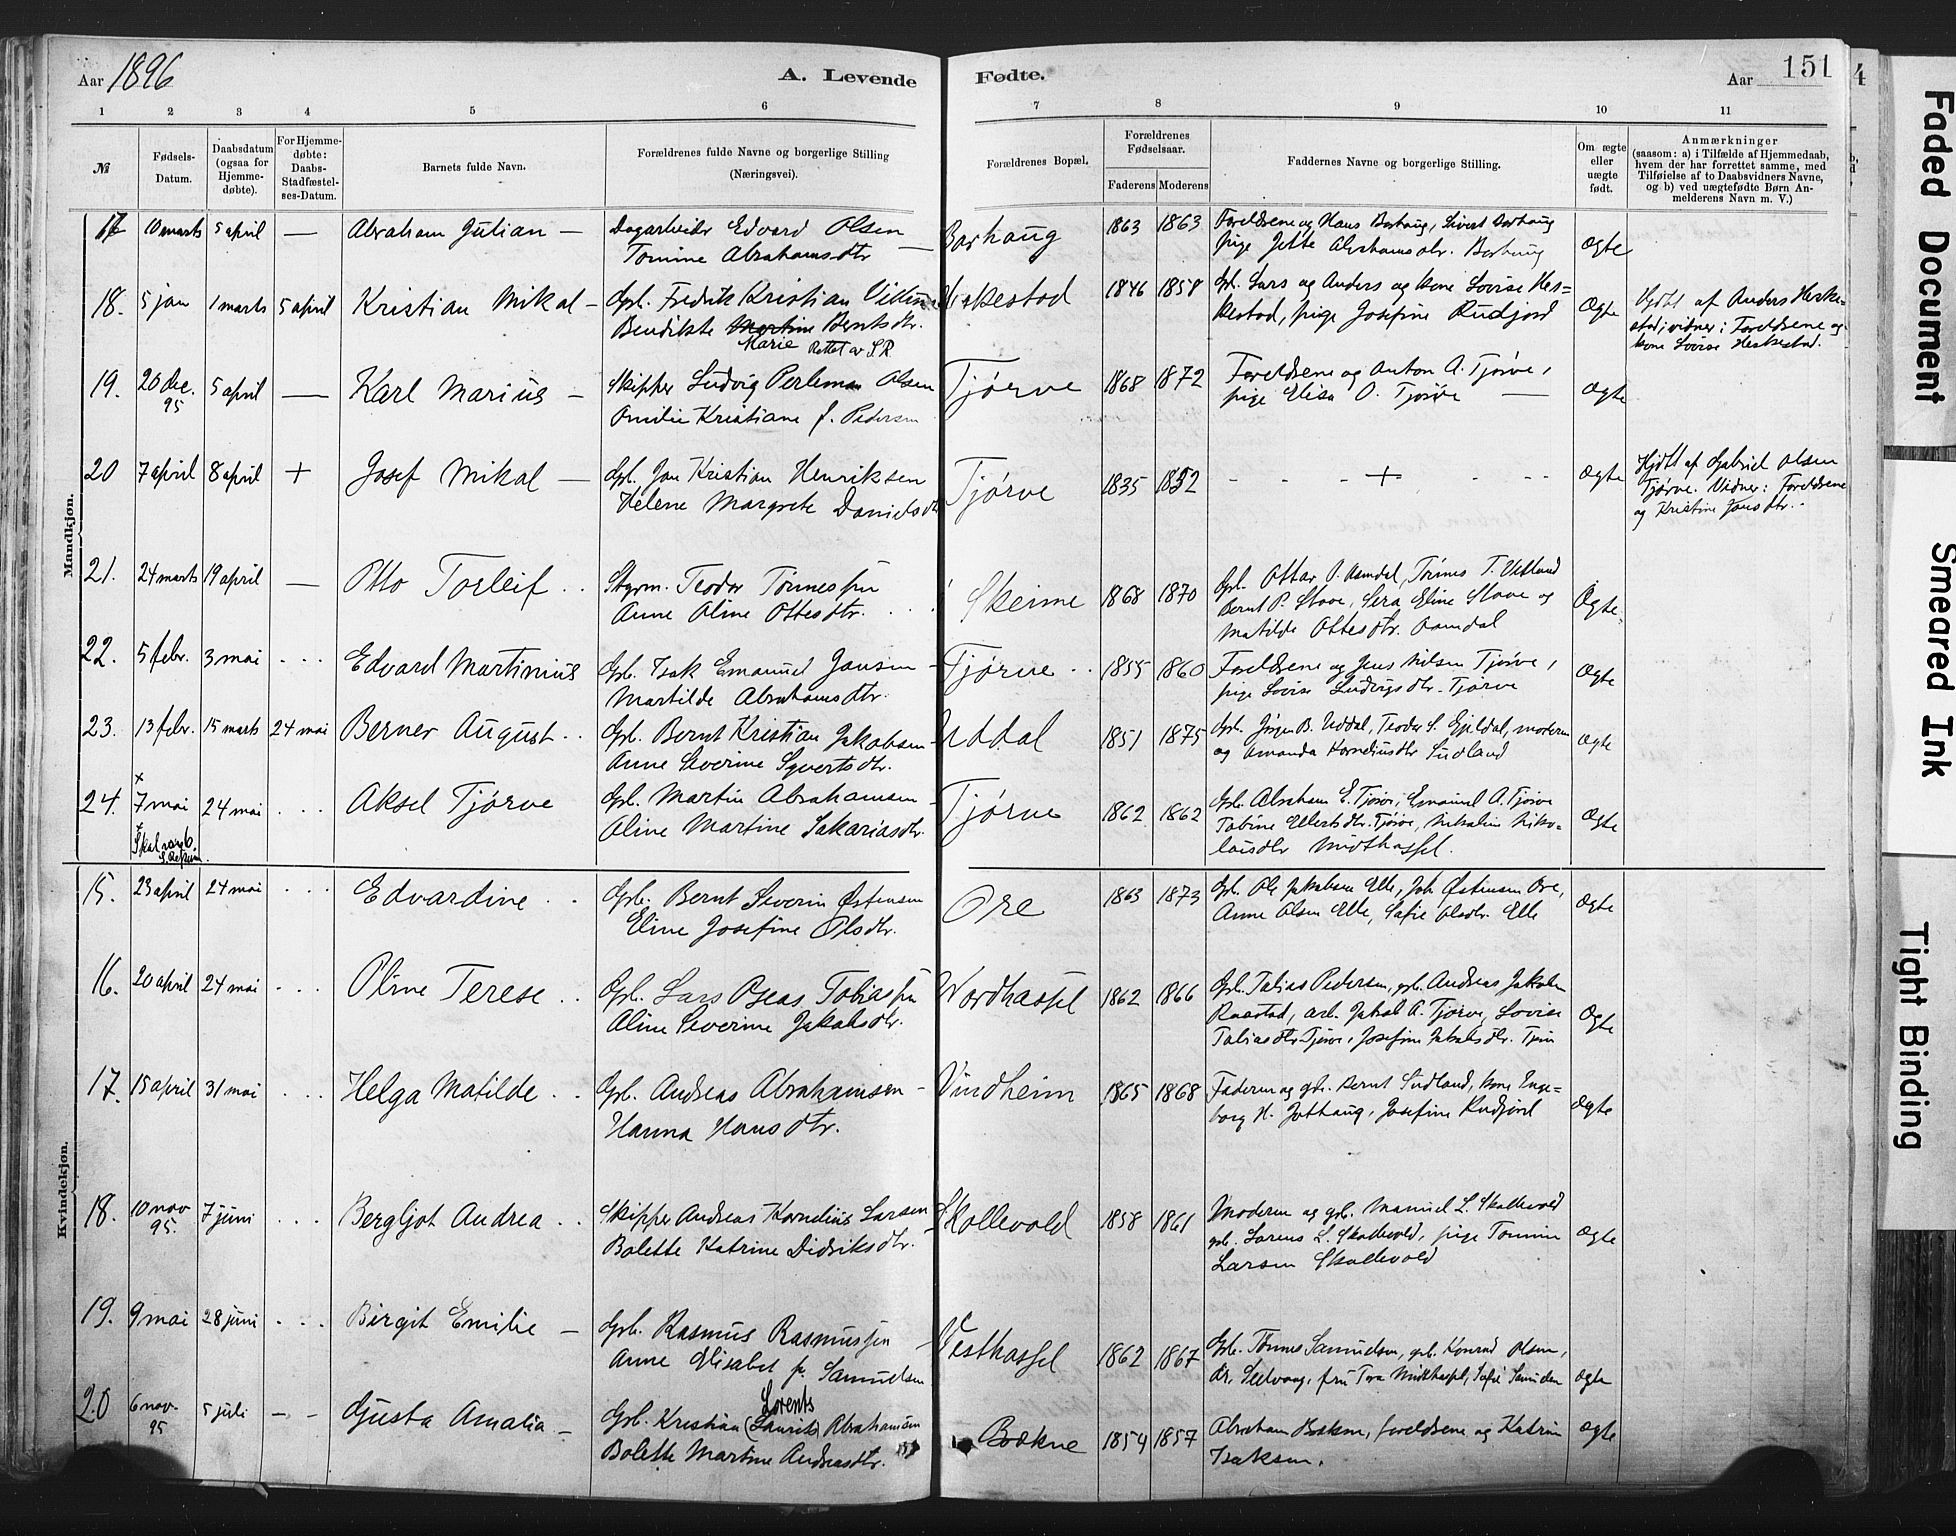 Aar 1896 A. Levende Fødte. Aar 151
1 2 3 4 5 6 7 8 9 10 11
№ Fødsels-Datum. Daabsdatum (ogsaa for Hjemmedøbte). For Hjemmedøbte: Daabs-Stadfæstelses-Datum. Barnets fulde Navn. Forældrenes fulde Navne og borgerlige Stilling (Næringsvei). Forældrenes Bopæl. Forældrenes Fødselsaar. Faderens Moderens Faddernes Navne og borgerlige Stilling. Om ægte eller uægte født. Anmærkninger (saasom: a) i Tilfælde af Hjemmedaab, hvem der har forrettet samme, med Tilføielse af to Daabsvidners Navne, og b) ved uægtefødte Børn Anmelderens Navn m. V.)
Mandkjøn.
17 10 marts 5 april — Abraham Julian — Dagarbeider Edvard Olsen
Tomine Abrahamsdtr — Borhaug 1863 1863 Foreldrene og Hans Borhaug, Sivert Borhaug
pige Jette Abrahamsdtr. Borhaug ægte
18. 5 jan 1 marts 5 april Kristian Mikal — Gbl. Fredrik Kristian
Bendikte Martine Berntsdtr.
Marie Rettet av S.R.
Heskestad 1846 1858 Gbl. Lars og Anders og kone Lovise Hes=
kestad, pige Josefine Rudjord ægte Hjdbt af Anders Heske=
stad; vidner: Foreldrene og
kone Lovise Heskestad.
19. 20 dec. 95 5 april — Karl Marius — Skipper Ludvig Perleman Olsen
Emilie Kristiane f. Pedersen Tjørve 1868 1872 Foreldrene og Anton A. Tjørve,
pige Elisa O. Tjørve — ægte
20 7 april 8 april + Josef Mikal — Gbl. Jon Kristian Henriksen
Helene Margrete Danielsdtr Tjørve 1835 1852 - - - + - - - ægte Hjdbt af Gabriel Olsen
Tjørve. Vidner: Foreldrene
og Kristine Jonsdtr.
21. 24 marts 19 april — Otto Torleif . . Styrm. Teodor Tønnessen
Anne Oline Ottesdtr. . . . Skeime 1868 1870 Gbl. Ottar O. Aamdal, Tønnes T. Vetland
Bernt P. Stave, Sera Eline Stave og
Matilde Ottesdtr. Aamdal Ægte.
22. 5 febr. 3 mai . . . Edvard Martinius Gbl. Isak Emanuel Jansen —
Martilde Abrahamsdtr. Tjørve . . 1855 1860 Foreldrene og Jens Nilsen Tjørve,
pige Lovise Ludvigsdtr. Tjørve ægte
23. 13 febr. 15 marts 24 mai Berner August . . Gbl. Bernt Kristian Jakobsen —
Anne Severine Syvertsdtr. Uddal 1851 1875 Gbl. Jørgen B. Uddal, Teodor S. Gjeldal, moderen
og Amanda Korneliusdtr Sudland ægte
24. x 7 mai 24 mai . . . Aksel Tjørve Gbl. Martin Abrahamsen —
Oline Martine Sakariasdtr. Tjørve 1862 1862 Gbl. Abraham E. Tjørve, Emanuel A. Tjørve
Tobine Ellertsdtr. Tjørve, Nikoline Niko=
laisdtr Midthassel. ægte
x Skal være 6.
Kvindekjøn.
15. 23 april 24 mai . . . Edvardine . . Gbl. Bernt Severin Østensen
Eline Josefine Olsdtr. Ore 1863 1873 Gbl. Ole Jakobsen Elle, Joh Østensen Ore,
Anne Olsen Elle, Sofie Olsdtr. Elle ægte
16. 20 april 24 mai . . . Oline Terese . . Gbl. Lars Oseas Tobiassen
Aline Severine Jakobsdtr. Nordhassel 1862 1866 Gbl. Tobias Pedersen, gbl. Andreas Jakobsen
Raastad, arb. Jakob A. Tjørve, Lovise
Tobiasdtr Tjørve, Josefine Jakobsdtr. Tjørve ægte
17. 15 april 31 mai . . . Helga Matilde . . Gbl. Andreas Abrahamsen —
Hanna Hansdtr. Vindheim 1865 1868 Faderen og gbr. Bernt Sudland, kone Inge=
borg H. Jøthaug, Josefine Rudjord ægte
18. 10 nov 95. 7 juni . . . Bergljot Andrea . . Skipper Andreas Kornelius Larsen
Bolette Katrine Didriksdtr. — Skollevold 1858 1861 Moderen og gbl. Manuel L. Skollevold
gbl. Lorens L. Skollevold, pige Tomine
Larsen Skollevold ægte
19. 9 mai 28 juni . . . Birgit Emilie — Gbl. Rasmus Rasmussen —
Anne Elisabet f. Samuelsen Vesthassel 1862 1867 Gbl. Tønnes Samuelsen, gbl. Konrad Olsen,
fru Tora Midthassel, Sofie ægte
20 6 nov. 95 5 juli — - Gusta Amalia — Gbl. Kristian (Laurits) Lorents Abrahamsen
Bolette Martine Andreasdtr. Bøkne 1854 1857 Abraham Bøkne, foreldrene og Katrine
Isaksen. ægte
Faded Document
Smeared Ink
Tight Binding